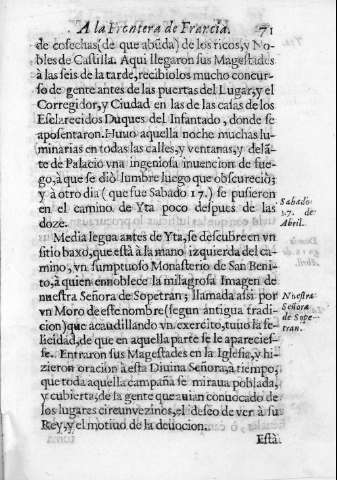 A la Frontera de Francia.
71
de cosechas (de que abũda) de los ricos, y No-
bles de Castilla. Aqui llegaron sus Magestades
à las seis de la tarde, recibiolos mucho concur-
so de gente antes de las puertas del Lugar, y el
Corregidor, y Ciudad en las de las casas de los
Esclarecidos Duques del Infantado, donde se
aposentaron. Huuo aquella noche muchas lu-
minarias en todas las calles, y ventanas, y delã-
te de Palacio vna ingeniosa inuencion de fue-
go, à que se diò lumbre luego que obscureciò;
y à otro dia (que fue Sabado 17.) se pusieron
en el camino de Yta poco despues de las
doze.
Sabado
17. de
Abril.
Media legua antes de Yta, se descubre en vn
sitio baxo, que està à la mano izquierda del ca-
mino, vn sumptuoso Monasterio de San Beni-
to, à quien ennoblece la milagrosa Imagen de
nuestra Señora de Sopetràn; llamada assi por
vn Moro de este nombre (segun antigua tradi-
cion) que acaudillando vn exercito, tuuo la fe-
licidad, de que en aquella parte se le aparecies-
se. Entraron sus Magestades en la Iglesia, y hi-
zieron oracion à esta Diuina Señora, a tiempo,
que toda aquella campaña se miraua poblada,
y cubierta, de la gente que auian conuocado de
los lugares circunvezinos, el deseo de ver à su
Rey, y el motiuo de la deuocion.
Nuestra
Señora
de Sope-
tran.
Està